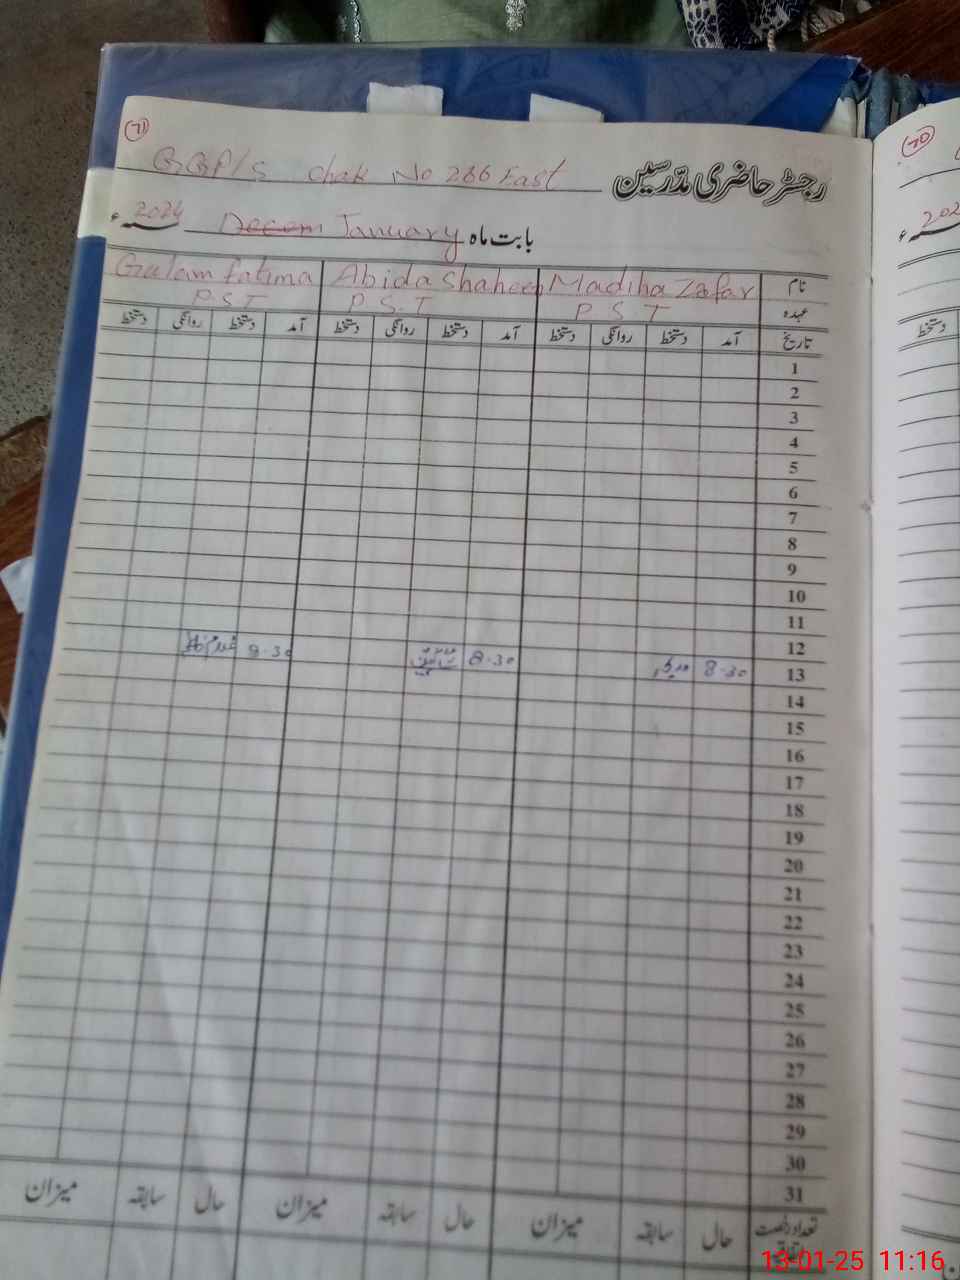 71
G.G.P/S Chak No 286 East رجسٹر حاضری مدّرسین
بابت ماہ Decem January 2024 سنہ ء
نام Madiha Zafar Abida Shaheen Gulam Fatima
عہدہ P S T P S.T P S T
تاریخ آمد دستخط روانگی دستخط آمد دستخط روانگی دستخط آمد دستخط روانگی دستخط
1
2
3
4
5
6
7
8
9
10
11
12
13 8-30 8-30 8-30
14
15
16
17
18
19
20
21
22
23
24
25
26
27
28
29
30
31
حال سابقہ میزان حال سابقہ میزان حال سابقہ میزان
70
202
سنہ ء
دستخط
13-01-25 11:16